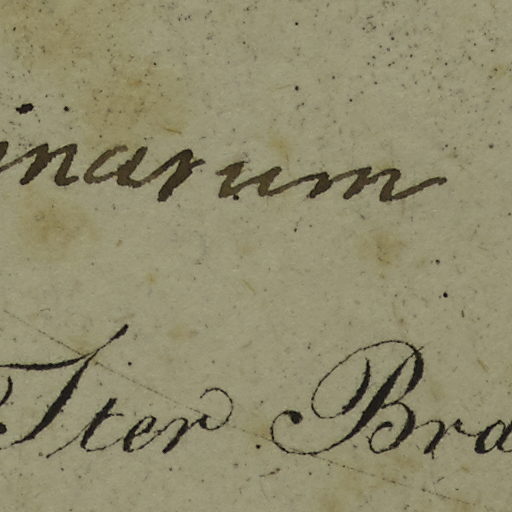 inarum
Iter Bra